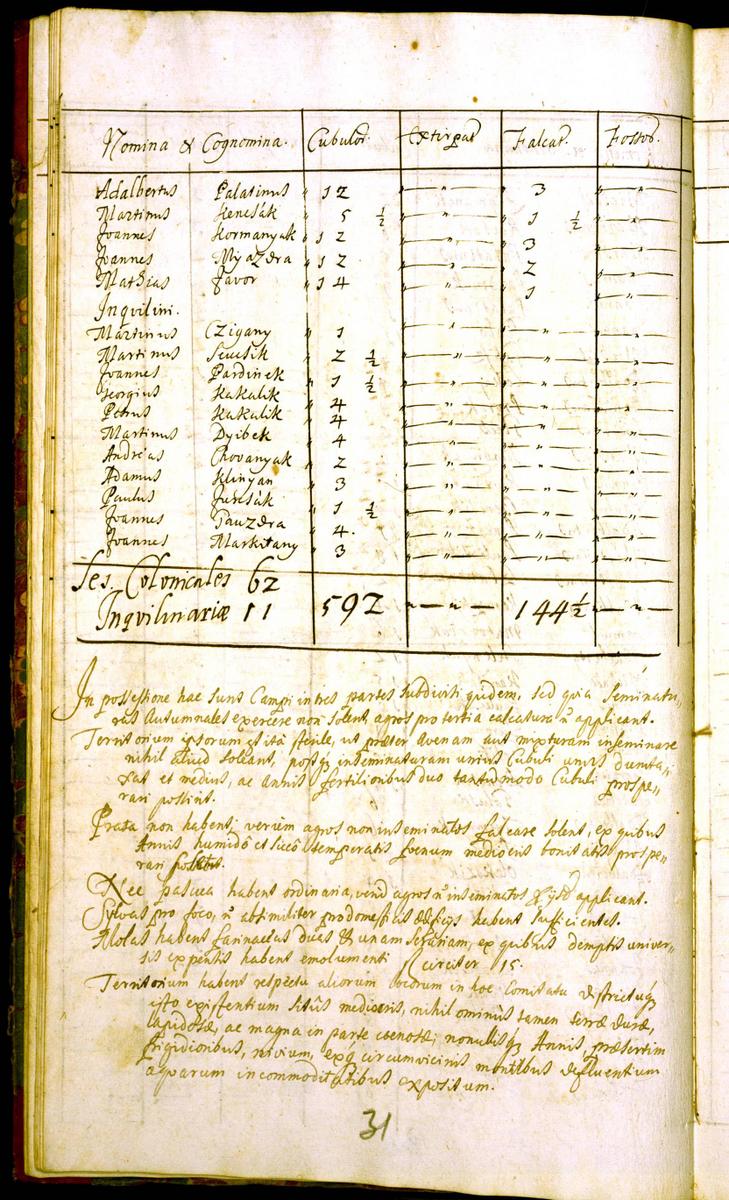 Nomina & Cognomina. Cubulor. Extirpat. Falcat. Fossor.
Adalbertus Palatinus " 12 " " 3 "
Martinus Hencsák " 5 ½ " " 1 ½ "
Joannes Kormanyak " 12 " " 3 "
Joannes Myazdra " 12 " " 2 "
Mathias Javor " 14 " " 1 "
Inquilini.
Martinus Czigany " 1 " " "
Martinus " 2 ½ " " "
Joannes Pardinek " 1 ½ " " "
Georgius Kakalik " 4 " " "
Petrus Kakalik " 4 " " "
Martinus Dyibek " 4 " " "
Andreas Chovanyak " 2 " " "
Adamus Klinyan " 3 " " "
Paulus Jurcsák " 1 ½ " " "
Joannes Pauzdra " 4. " " "
Joannes Markitany " 3 " " "
Ses. Colonicales 62
Inquilinariæ 11 592 " " 144½ " "
In possessione hac sunt Campi in tres partes subdivisi quidem, sed quia seminatu„
ras Autumnales exercere non solent, agros pro tertia calcatura ñ applicant.
Territorium ipsorum est ita sterile, ut præter Avenam aut mixturam inseminare
nihil aliud soleant, postq inseminaturam unius Cubuli unus dunta„
xat et medius, ac Annis fertilionibus duo tantummodo Cubuli prospe„
rari possint.
Prata non habent, verùm agros non inseminatos falcare solent, ex quibus
Annis humido et sicco temperatis foenum mediocris bonitatis prospe„
rari
Nec pascua habent ordinaria, verùm agros ñ inseminatos applicant.
Sylvas pro foco, ñ absimiliter pro domesticis ædificijs habent sufficientes.
Molas habent farinaceas duas & unam serariam, ex quibus demptis univer„
sis expensis habent emolumenti circiter 15.
Territorium habent respectu aliorum locorum in hoc Comitatu et districtuq
isto existentium sitûs mediocris, nihil ominùs tamen terræ duræ,
lapidosæ, ac magna in parte cænosæ; nonullisq Annis, præsertim
frigidioribus, nivium, exq circumvicinis montibus defluentium
aquarum incommoditatibus expositum.
31